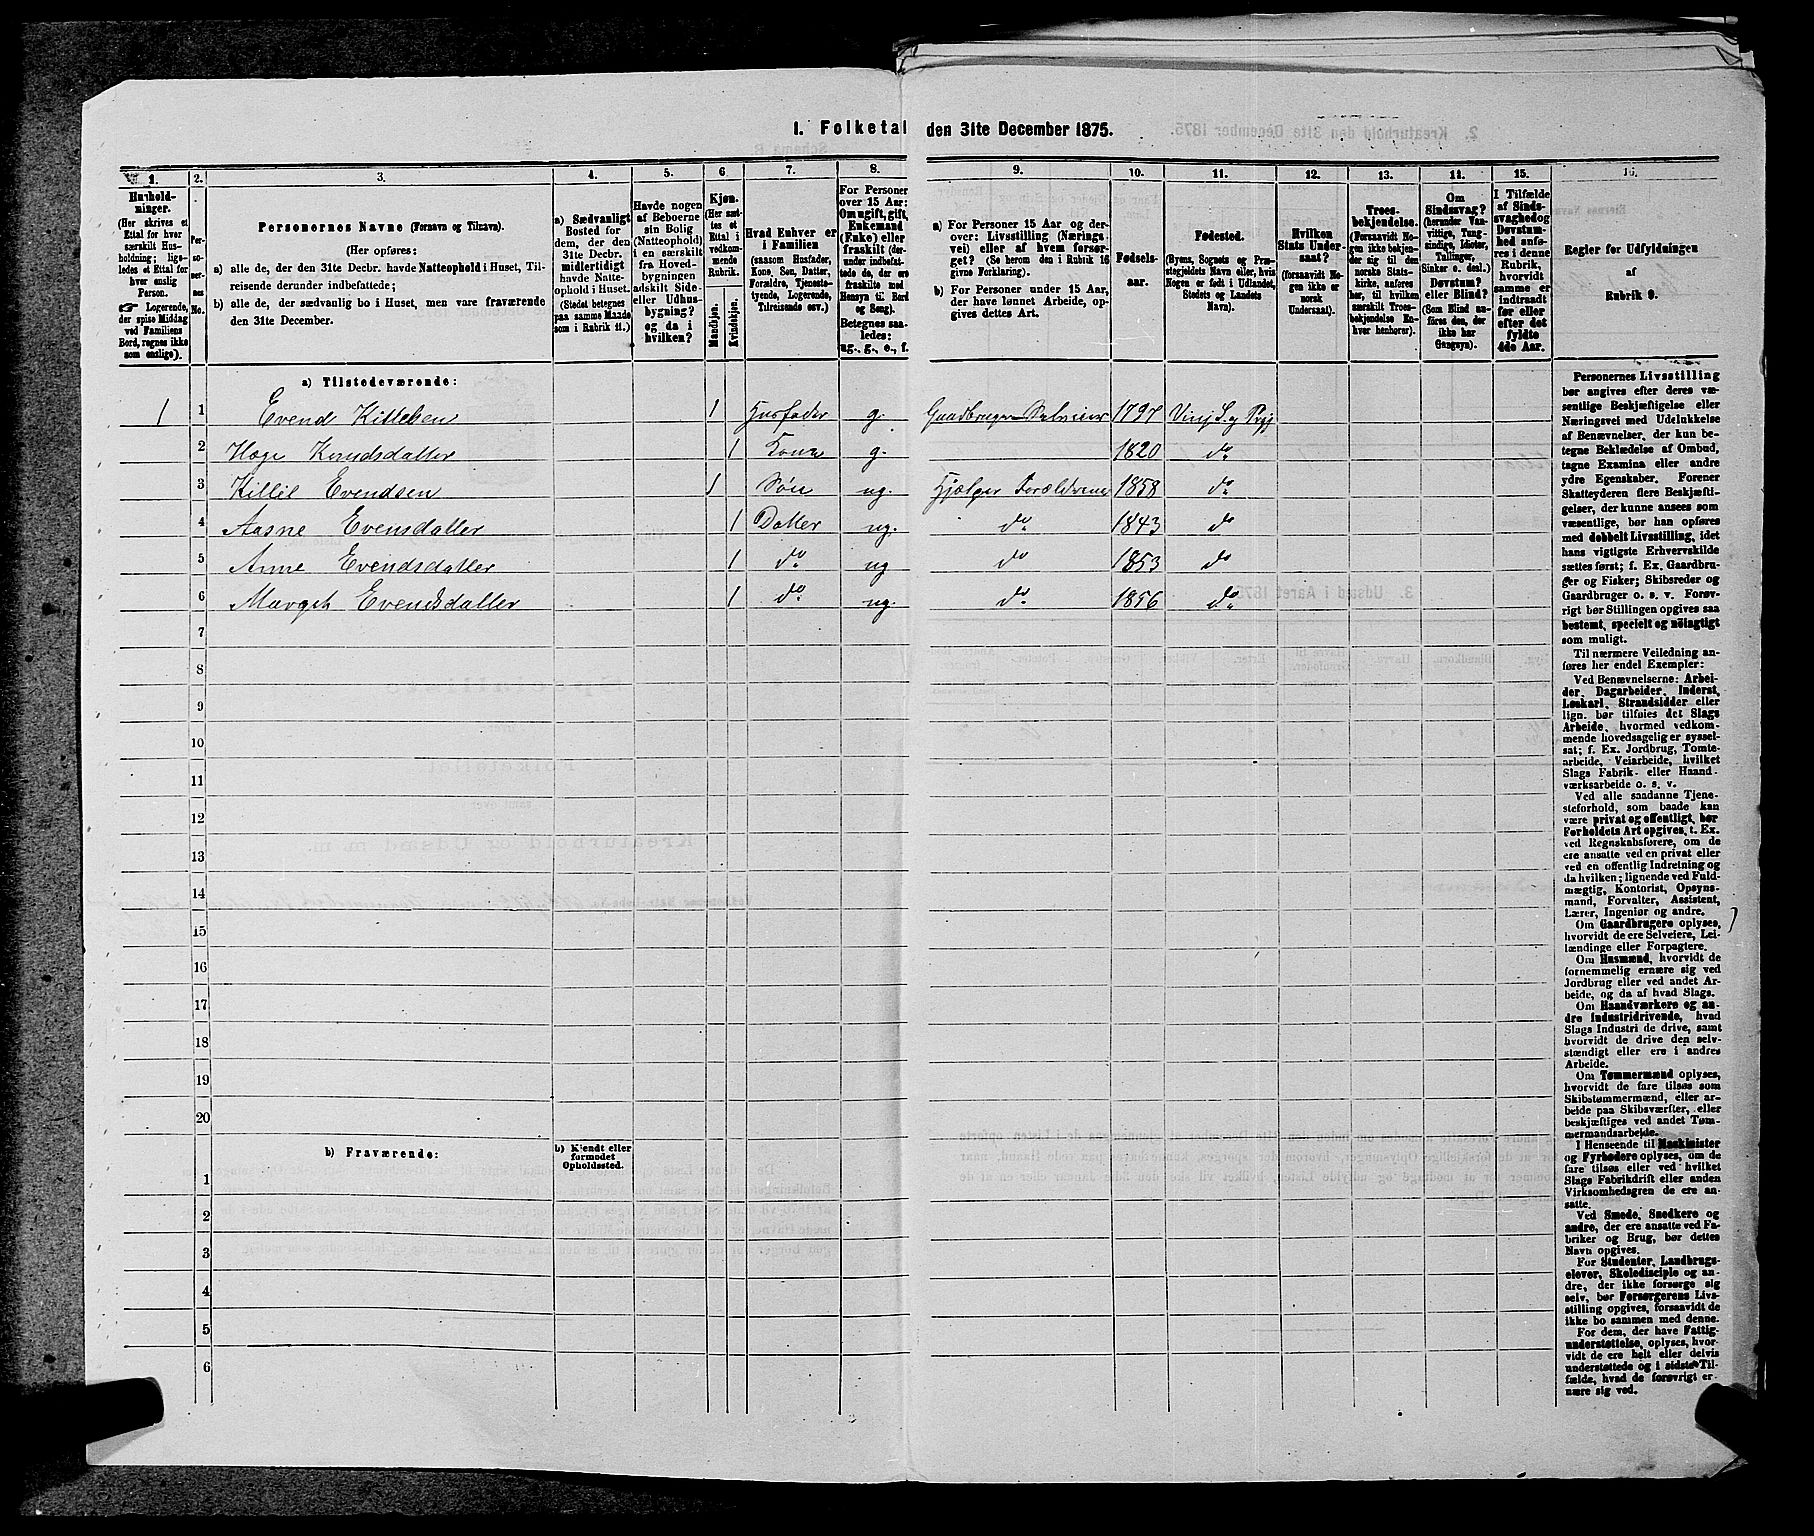 I. Folketal den 31te December 1875.
1. 2. 3. 4. 5. 6 7. 8. 9. 10. 11. 12. 13. 14. 15. 16.
Hushold-
ninger.
(Her skrives et
Ettal for hver
særskilt Hus-
holdning; lig-
ledes et Ettal for
hver enslig
Person.
☞ Logerende,
der spise Middag
ved Familiens
Bord, regnes ikke
som enslige).
Per-
so-
ner-
nes
No.
Personernes Navne (Fornavn og Tilnavn).
(Her opføres:
a) alle de, der den 31te Decbr. havde Natteophold i Huset, Til-
reisende derunder indbefattede;
b) alle de, der sædvanlig bo i Huset, men vare fraværende
den 31te December.
a) Sædvanligt
Bosted for
dem, der den
31te Decbr.
midlertidigt
havde Natte-
ophold i Huset.
(Stedet betegnes
paa samme Maade
som i Rubrik 11.)
Havde nogen
af Beboerne
sin Bolig
(Natteophold)
i en særskilt
fra Hoved-
bygningen
adskilt Side-
eller Udhus-
bygning?
og da i
hvilken?
Kjøn.
(Her sæt-
tes et
Ettal i
vedkom-
mende
Rubrik.
Mandkjøn.
Kvindekjøn.
Hvad Enhver er
i Familien
(saasom Husfader,
Kone, Søn, Datter,
Forældre, Tjeneste-
tyende, Logerende,
Tilreisende osv.)
For Personer
over 15 Aar:
Om ugift, gift,
Enkemand
(Enke) eller
fraskilt (der-
under indbefat-
tede de, der ere
fraskilte med
Hensyn til Bord
og Seng).
Betegnes saa-
ledes:
ug., g., e., f.
a) For Personer 15 Aar og der-
over: Livsstilling (Nærings-
vei) eller af hvem forsør-
get? (Se herom den i Rubrik 16
givne Forklaring).
b) For Personer under 15 Aar,
der have lønnet Arbeide, op-
gives dettes Art.
Fødsels-
aar.
Fødested.
(Byens, Sognets og Præ-
stegjeldets Navn eller, hvis
Nogen er født i Udlandet,
Stedets og Landets
Navn).
Hvilken
Stats Under-
saat?
(forsaavidt No-
gen ikke er
norsk
Undersaat).
Troes-
bekjendelse.
(Forsaavidt No-
gen ikke bekjen-
der sig til den
norske Stats-
kirke, anføres
her, til hvilken
særskilt Troes-
bekjendelse En-
hver henhører).
Om
Sindssvag?
(herunder Van-
vittige, Tung-
sindige, Idioter,
Tullinger,
Sinker o. desl.)
Døvstum?
eller Blind?
(Som Blind an-
føres den, der
ikke har
Gangsyn).
I Tilfælde
af Sinds-
svaghed og
Døvstum-
hed anfø-
res i denne
Rubrik,
hvorvidt
samme er
indtraadt
før eller
efter det
fyldte
4de Aar.
Regler for Udfyldningen
af
Rubrik 9.
a) Tilstedeværende:
1 1 Evend Killeksen 1 Husfader g. Gaardbruger Selveier 1797 Vinje S. og Pgj
2 Hæge Knudsdatter 1 Kone g. 1820 do
3 Killil Evendsen 1 Søn ug. Hjælper Forældrene 1858 do
4 Aasne Evensdatter 1 Datter ug. do 1843 do
5 Anne Evendsdatter 1 do ug do 1853 do
6 Margit Evendsdatter 1 do ug. do 1856 do
7
8
9
10
11
12
13
14
15
16
17
18
19
20
b) Fraværende:
b) Kjendt eller
formodet
Opholdssted.
1
2
3
4
5
6
Personernes Livsstilling
bør angives efter deres væ-
sentlige Beskjæftigelse eller
Næringsvei med Udelukkelse
af Benævnelser, der kun be-
tegne Beklædelse af Ombud,
tagne Examina eller andre
ydre Egenskaber. Forener
Skatteyderen flere Beskjæfti-
gelser, der kunne ansees som
væsentlige, bør han opføres
med dobbelt Livsstilling, idet
hans vigtigste Erhvervskilde
sættes først; f. Ex. Gaardbru-
ger og Fisker; Skibsreder og
Gaardbruger o. s. v. Forøv-
rigt bør Stillingen opgives saa
bestemt, specielt og nøiagtigt
som muligt.
Til nærmere Veiledning an-
føres her endel Exempler:
Ved Benævnelserne: Arbei-
der, Dagarbeider, Inderst,
Løskarl, Strandsidder eller
lign. bør tilføies det Slags
Arbeide, hvormed vedkom-
mende hovedsagelig er syssel-
sat; f. Ex. Jordbrug, Tomte-
arbeide, Veiarbeide, hvilket
Slags Fabrik- eller Haand-
værksarbeide o. s. v.
Ved alle saadanne Tjene-
steforhold, som baade kan
være privat og offentligt, bør
Forholdets Art opgives, t. Ex.
ved Regnskabsførere, om de
ere ansatte ved en privat eller
ved en offentlig Indretning og
da hvilken; lignende ved Fuld-
mægtig, Kontorist, Opsyns-
mand, Forvalter, Assistent,
Lærer, Ingeniør og andre.
Om Gaardbrugere oplyses,
hvorvidt de ere Selveiere, Lei-
lændinge eller Forpagtere.
Om Husmænd, hvorvidt de
fornemmelig ernære sig ved
Jordbrug eller ved andet Ar-
beide, og da af hvad Slags.
Om Haandværkere og an-
dre Industridrivende, hvad
Slags Industri de drive, samt
hvorvidt de drive den selv-
stændigt eller ere i andres
Arbeide.
Om Tømmermænd oplyses,
hvorvidt de fare tilsøs som
Skibstømmermænd, eller ar-
beide paa Skibsværfter, eller
beskjæftiges ved andet Tøm-
mermandsarbeide.
I Henseende til Maskinister
og Fyrbødere oplyses, om de
fare tilsøs eller ved hvilket
Slags Fabrikdrift eller anden
Virksomhedsgren de ere an-
satte.
Ved Smede, Snedkere og
andre, der ere ansatte ved Fa-
briker og Brug, bør dettes
Navn opgives.
For Studenter, Landbrugs-
elever, Skoledisciple og an-
dre, der ikke forsørge sig
selv, bør Forsørgerens Livs-
stilling opgives, forsaavidt de
ikke bo sammen med denne.
For dem, der have Fattig-
understøttelse, oplyses, hvor-
vidt de ere helt eller delvis
understøttede og i sidste Til-
fælde, hvad de forøvrigt er-
nære sig ved.